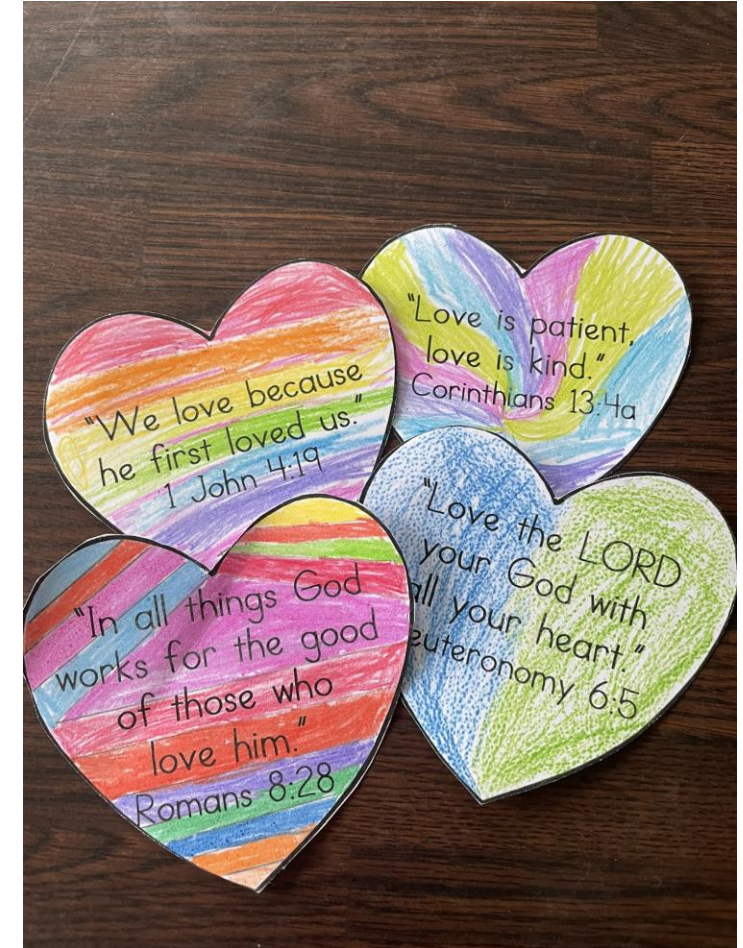 "We love because
he first loved us."
1 John 4:19
"Love is patient,
love is kind."
Corinthians 13:4a
"In all things God
works for the good
of those who
love him."
Romans 8:28
"Love the LORD
your God with
all your heart."
euteronomy 6:5